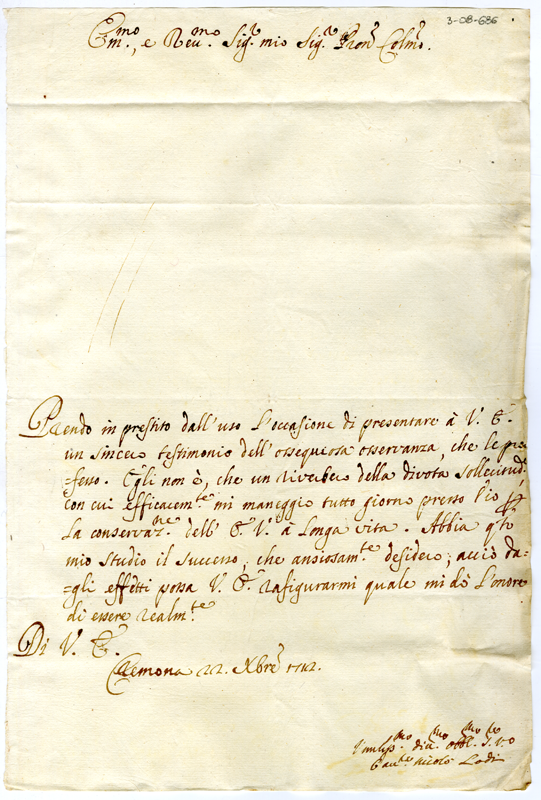 3-08-686
Em.mo, e Reu.mo Sig.r mio Sig.r Pron. Colmo.
Prendo in prestito dall'uso l'occasione di presentare à V. E.
un sincero testimonio dell'ossequiosa osservanza, che le pro=
=fesso. Egli non è, che un riverbero della divota sollecitud.e
con cui efficacem.te mi maneggio tutto giorno presso Dio
la conservaz.ne dell' E. V. à longa vita. Abbia q.to
mio studio il successo, che ansiosam.te desidero; acciò da=
=gli effetti possa V. E. rafigurarmi quale mi dò l'onore
di essere realm.te
Di V. E.
Cremona 22. Xbre 1712.
Vmiliss.mo diu.mo obbl.mo s.re
Nicolò Lodi